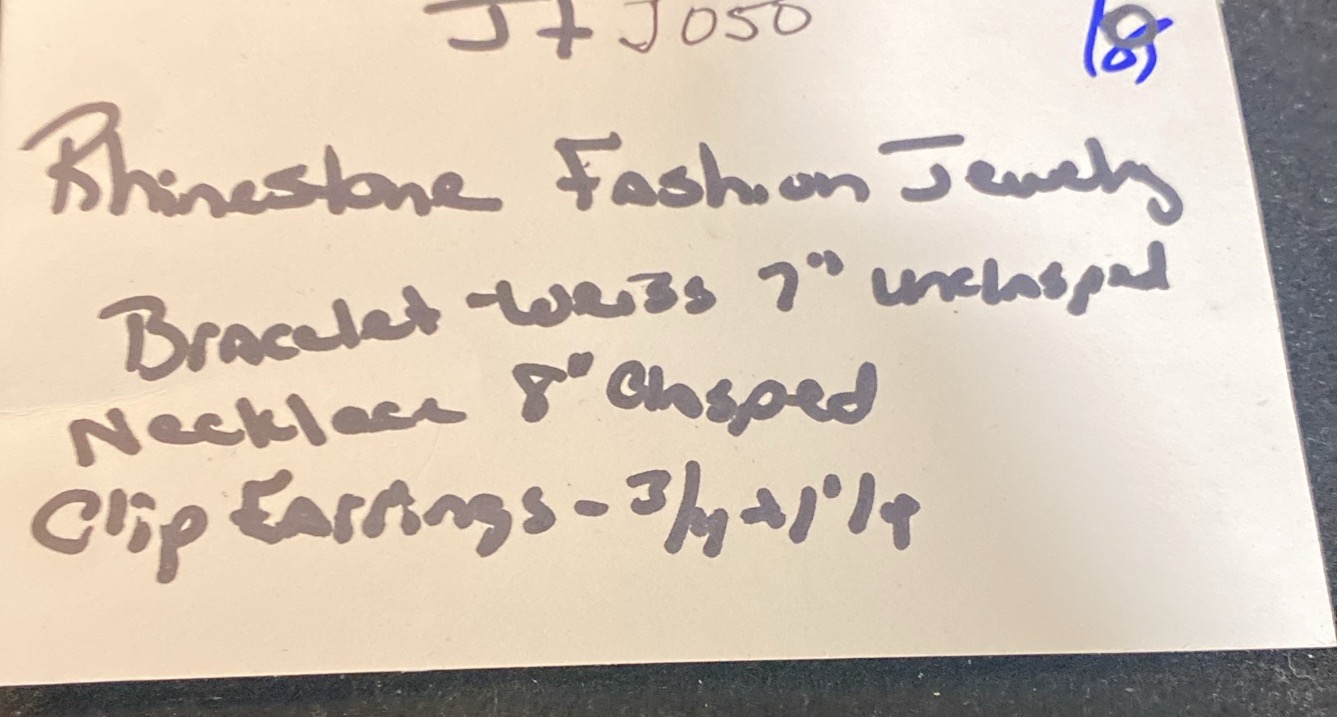 J+J050
Rhinestone Fashion Jewelry
Bracelet - Weiss 7" unclasped
Necklace 8" Clasped
Clip Earrings - 3/4 + 1 1/4